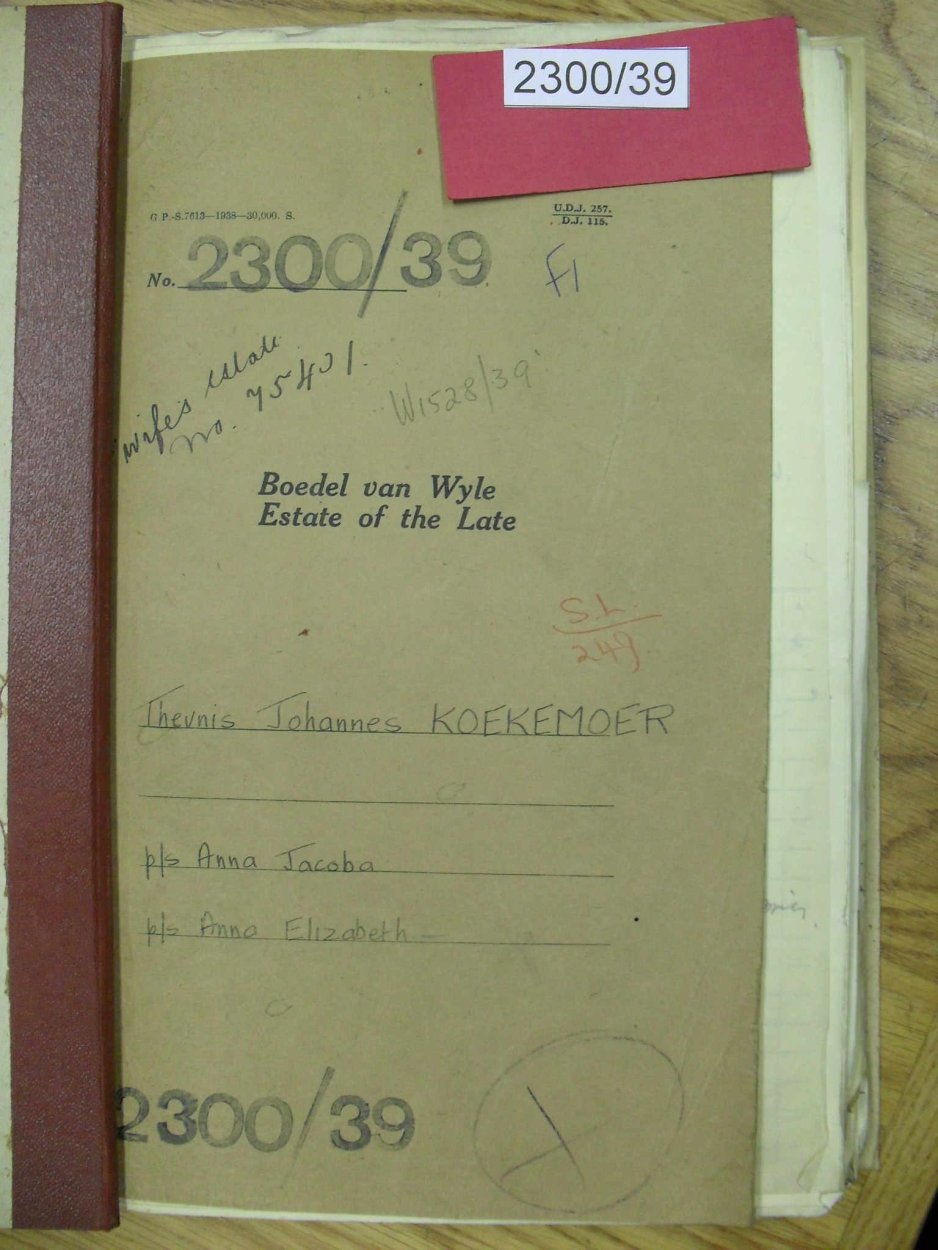 2300/39
G P.-S.7613—1938—30,000. S.
U.D.J. 257.
D.J. 115.
No. 2300/39
F1
Wife's estate
No. 75401.
W1528/39
Boedel van Wyle
Estate of the Late
S.L.
249
Theunis Johannes KOEKEMOER
p/s Anna Jacoba
p/s Anna Elizabeth
2300/39